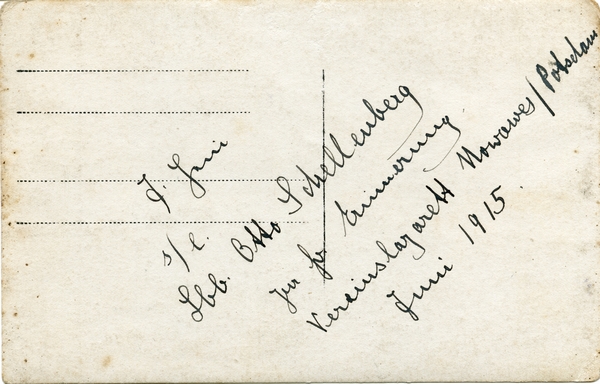 s/l.
Lbb. Otto Schellenberg
zur fr. Erinnerung
Vereinslazarett Nowawes/Potsdam
Juni 1915.